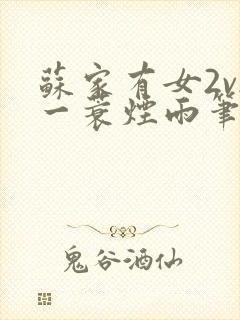 蘇家有女2v
一蓑煙雨筆
鬼谷酒仙